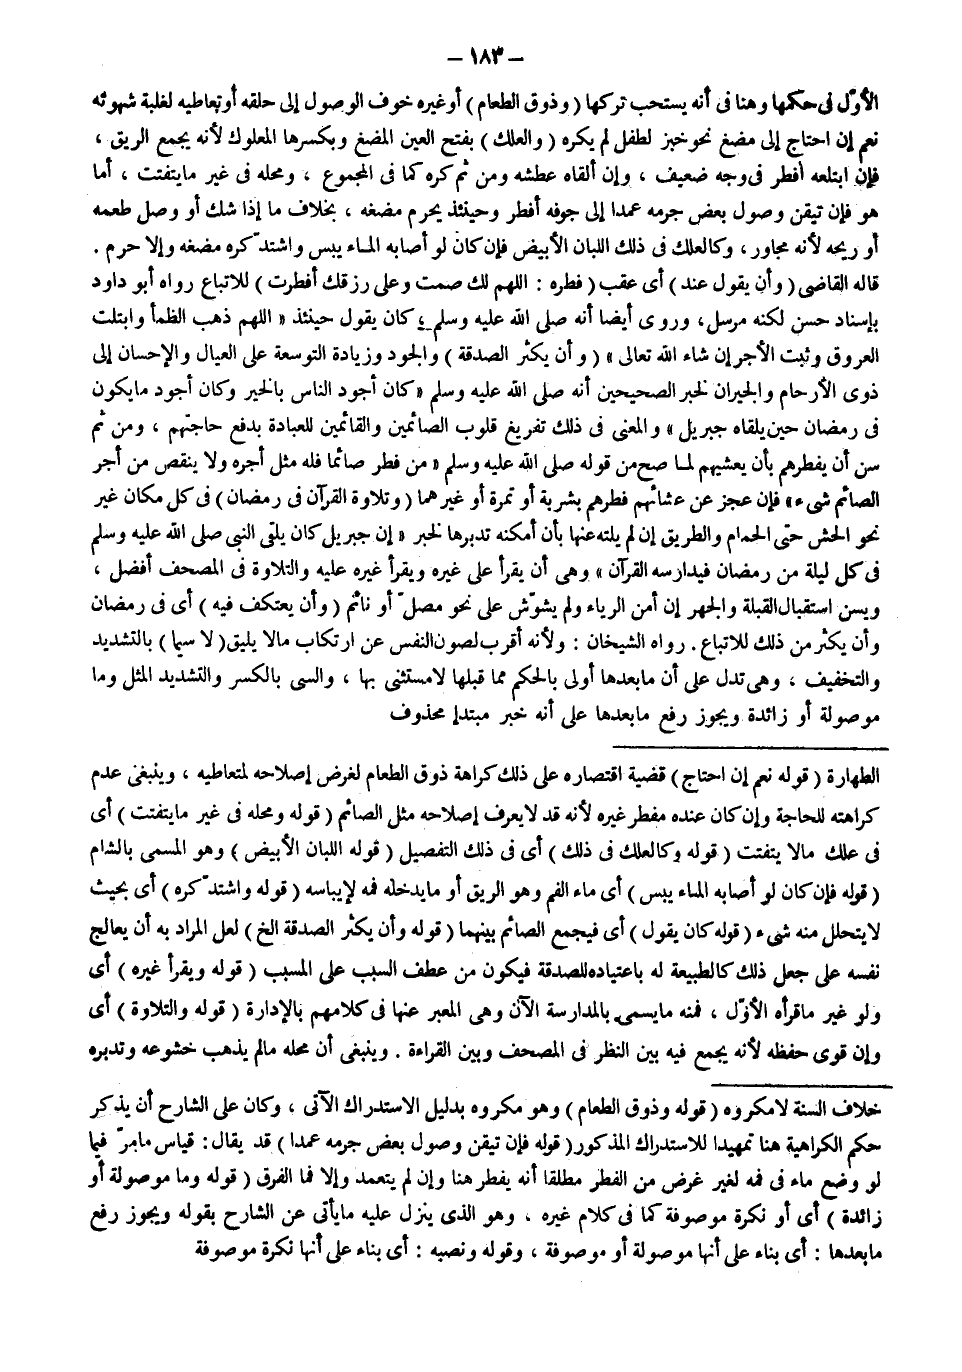 – ١٨٣ –
الأوّل فى حكمها وهنا فى أنه يستحب تركها ( وذوق الطعام ) أوغيره خوف الوصول إلى حلقه أوتعاطيه لغلبة شهوته
نعم إن احتاج إلى مضغ نحوخبز لطفل لم يكره ( والعلك ) بفتح العين المضغ وبكسرها المعلوك لأنه يجمع الريق ،
فإن ابتلعه أفطر فى وجه ضعيف ، وإن ألقاه عطشه ومن ثم كره كما فى المجموع ، ومحله فى غير مايتفتت ، أما
هو فإن تيقن وصول بعض جرمه عمدا إلى جوفه أفطر وحينئذ يحرم مضغه ، بخلاف ما إذا شك أو وصل طعمه
أو ريحه لأنه مجاور ، وكالعلك فى ذلك اللبان الأبيض فإن كان لو أصابه الماء يبس واشتدّ كره مضغه وإلا حرم .
قاله القاضى ( وأن يقول عند ) أى عقب ( فطره : اللهم لك صمت وعلى رزقك أفطرت ) للاتباع رواه أبو داود
بإسناد حسن لكنه مرسل ، وروى أيضا أنه صلى الله عليه وسلم « كان يقول حينئذ « اللهم ذهب الظمأ وابتلت
العروق وثبت الأجر إن شاء الله تعالى » ( وأن يكثر الصدقة ) والجود وزيادة التوسعة على العيال والإحسان إلى
ذوى الأرحام والجيران لخبر الصحيحين أنه صلى الله عليه وسلم « كان أجود الناس بالخير وكان أجود مايكون
فى رمضان حين يلقاه جبريل » والمعنى فى ذلك تفريغ قلوب الصائمين والقائمين للعبادة بدفع حاجتهم ، ومن ثم
سن أن يفطرهم بأن يعشيهم لما صح من قوله صلى الله عليه وسلم « من فطر صائما فله مثل أجره ولا ينقص من أجر
الصائم شىء » فإن عجز عن عشائهم فطرهم بشربة أو تمرة أو غيرهما ( وتلاوة القرآن فى رمضان ) فى كل مكان غير
نحو الحش حتى الحمام والطريق إن لم يلته عنها بأن أمكنه تدبرها لخبر « إن جبريل كان يلقى النبى صلى الله عليه وسلم
فى كل ليلة من رمضان فيدارسه القرآن » وهى أن يقرأ على غيره ويقرأ غيره عليه والتلاوة فى المصحف أفضل ،
ويسن استقبال القبلة والجهر إن أمن الرياء ولم يشوّش على نحو مصلّ أو نائم ( وأن يعتكف فيه ) أى فى رمضان
وأن يكثر من ذلك للاتباع . رواه الشيخان : ولأنه أقرب لصون النفس عن ارتكاب مالا يليق ( لا سيما ) بالتشديد
والتخفيف ، وهى تدل على أن مابعدها أولى بالحكم مما قبلها لامستثنى بها ، والسى بالكسر والتشديد المثل وما
موصولة أو زائدة ويجوز رفع مابعدها على أنه خبر مبتدإ محذوف
الطهارة ( قوله نعم إن احتاج ) قضية اقتصاره على ذلك كراهة ذوق الطعام لغرض إصلاحه لمتعاطيه ، وينبغى عدم
كراهته للحاجة وإن كان عنده مفطر غيره لأنه قد لايعرف إصلاحه مثل الصائم ( قوله ومحله فى غير مايتفتت ) أى
فى علك مالا يتفتت ( قوله وكالعلك فى ذلك ) أى فى ذلك التفصيل ( قوله اللبان الأبيض ) وهو المسمى بالشام
( قوله فإن كان لو أصابه الماء يبس ) أى ماء الفم وهو الريق أو مايدخله فمه لإيباسه ( قوله واشتدّ كره ) أى بحيث
لايتحلل منه شىء ( قوله كان يقول ) أى فيجمع الصائم بينهما ( قوله وأن يكثر الصدقة الخ ) لعل المراد به أن يعالج
نفسه على جعل ذلك كالطبيعة له باعتياده للصدقة فيكون من عطف السبب على المسبب ( قوله ويقرأ غيره ) أى
ولو غير ماقرأه الأوّل ، فمنه مايسمى بالمدارسة الآن وهى المعبر عنها فى كلامهم بالإدارة ( قوله والتلاوة ) أى
وإن قوى حفظه لأنه يجمع فيه بين النظر فى المصحف وبين القراءة . وينبغى أن محله مالم يذهب خشوعه وتدبره
خلاف السنة لامكروه ( قوله وذوق الطعام ) وهو مكروه بدليل الاستدراك الآتى ، وكان على الشارح أن يذكر
حكم الكراهية هنا تمهيدا للاستدراك المذكور ( قوله فإن تيقن وصول بعض جرمه عمدا ) قد يقال : قياس مامرّ فيما
لو وضع ماء فى فمه لغير غرض من الفطر مطلقا أنه يفطر هنا وإن لم يتعمد وإلا فما الفرق ( قوله وما موصولة أو
زائدة ) أى أو نكرة موصوفة كما فى كلام غيره ، وهو الذى ينزل عليه مايأتى عن الشارح بقوله ويجوز رفع
مابعدها : أى بناء على أنها موصولة أو موصوفة ، وقوله ونصبه : أى بناء على أنها نكرة موصوفة